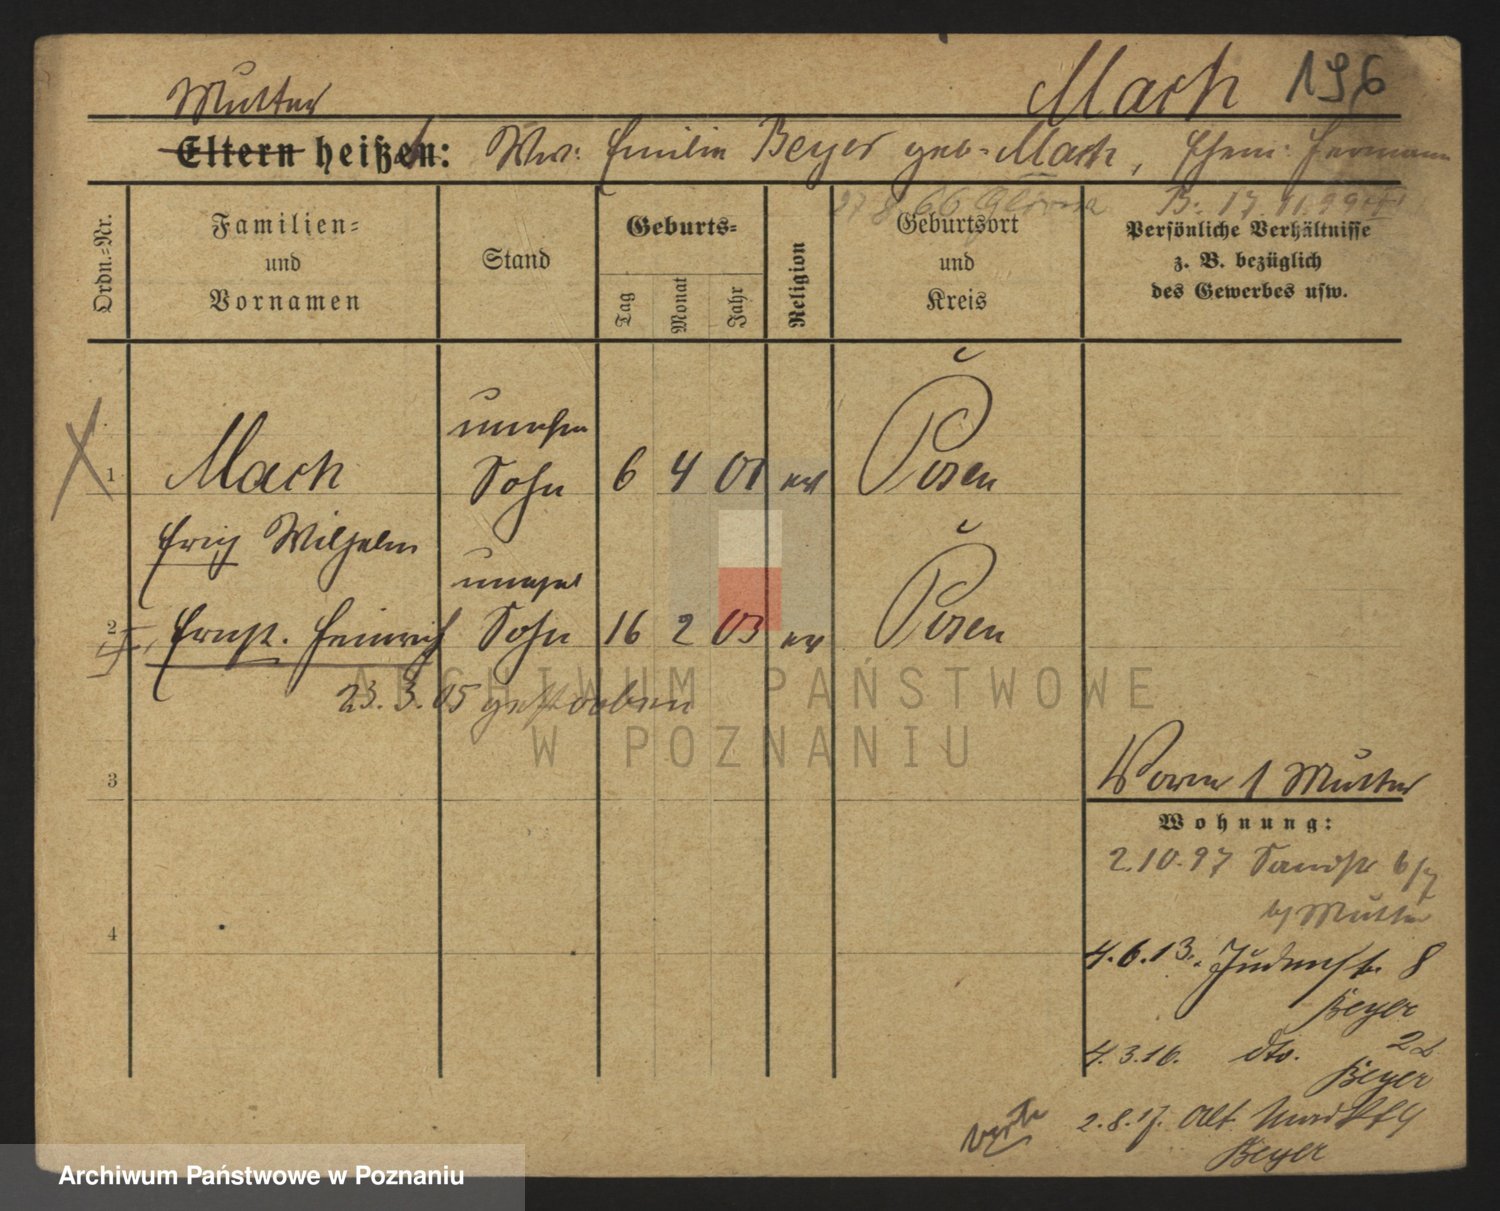 Mutter
Mach 196
Eltern heißen: Ww: Emilie Beyer geb. Mach, Ehem: Hermann
27.8.66 B. 17.11.99
Ordn.-Nr.
Familien-
und
Vornamen
Stand
Geburts-
Tag
Monat
Jahr
Religion
Geburtsort
und
Kreis
Persönliche Verhältnisse
z. B. bezüglich
des Gewerbes usw.
unehe
1 Mach Sohn 6 4 01 ev Posen
Erich Wilhelm
unehel
2 Ernst. Heinrich Sohn 16 2 03 ev Posen
23.3.05 gestorben
3
4
Mutter
Wohnung:
2.10.97 Sandstr 6/7
b/ Mutter
4.6.13. Judenstr. 8
Beyer
4.3.16. dto. 22
Beyer
2.8.17. Alt. Markt
Beyer
ARCHIWUM PAŃSTWOWE
W POZNANIU
Archiwum Państwowe w Poznaniu